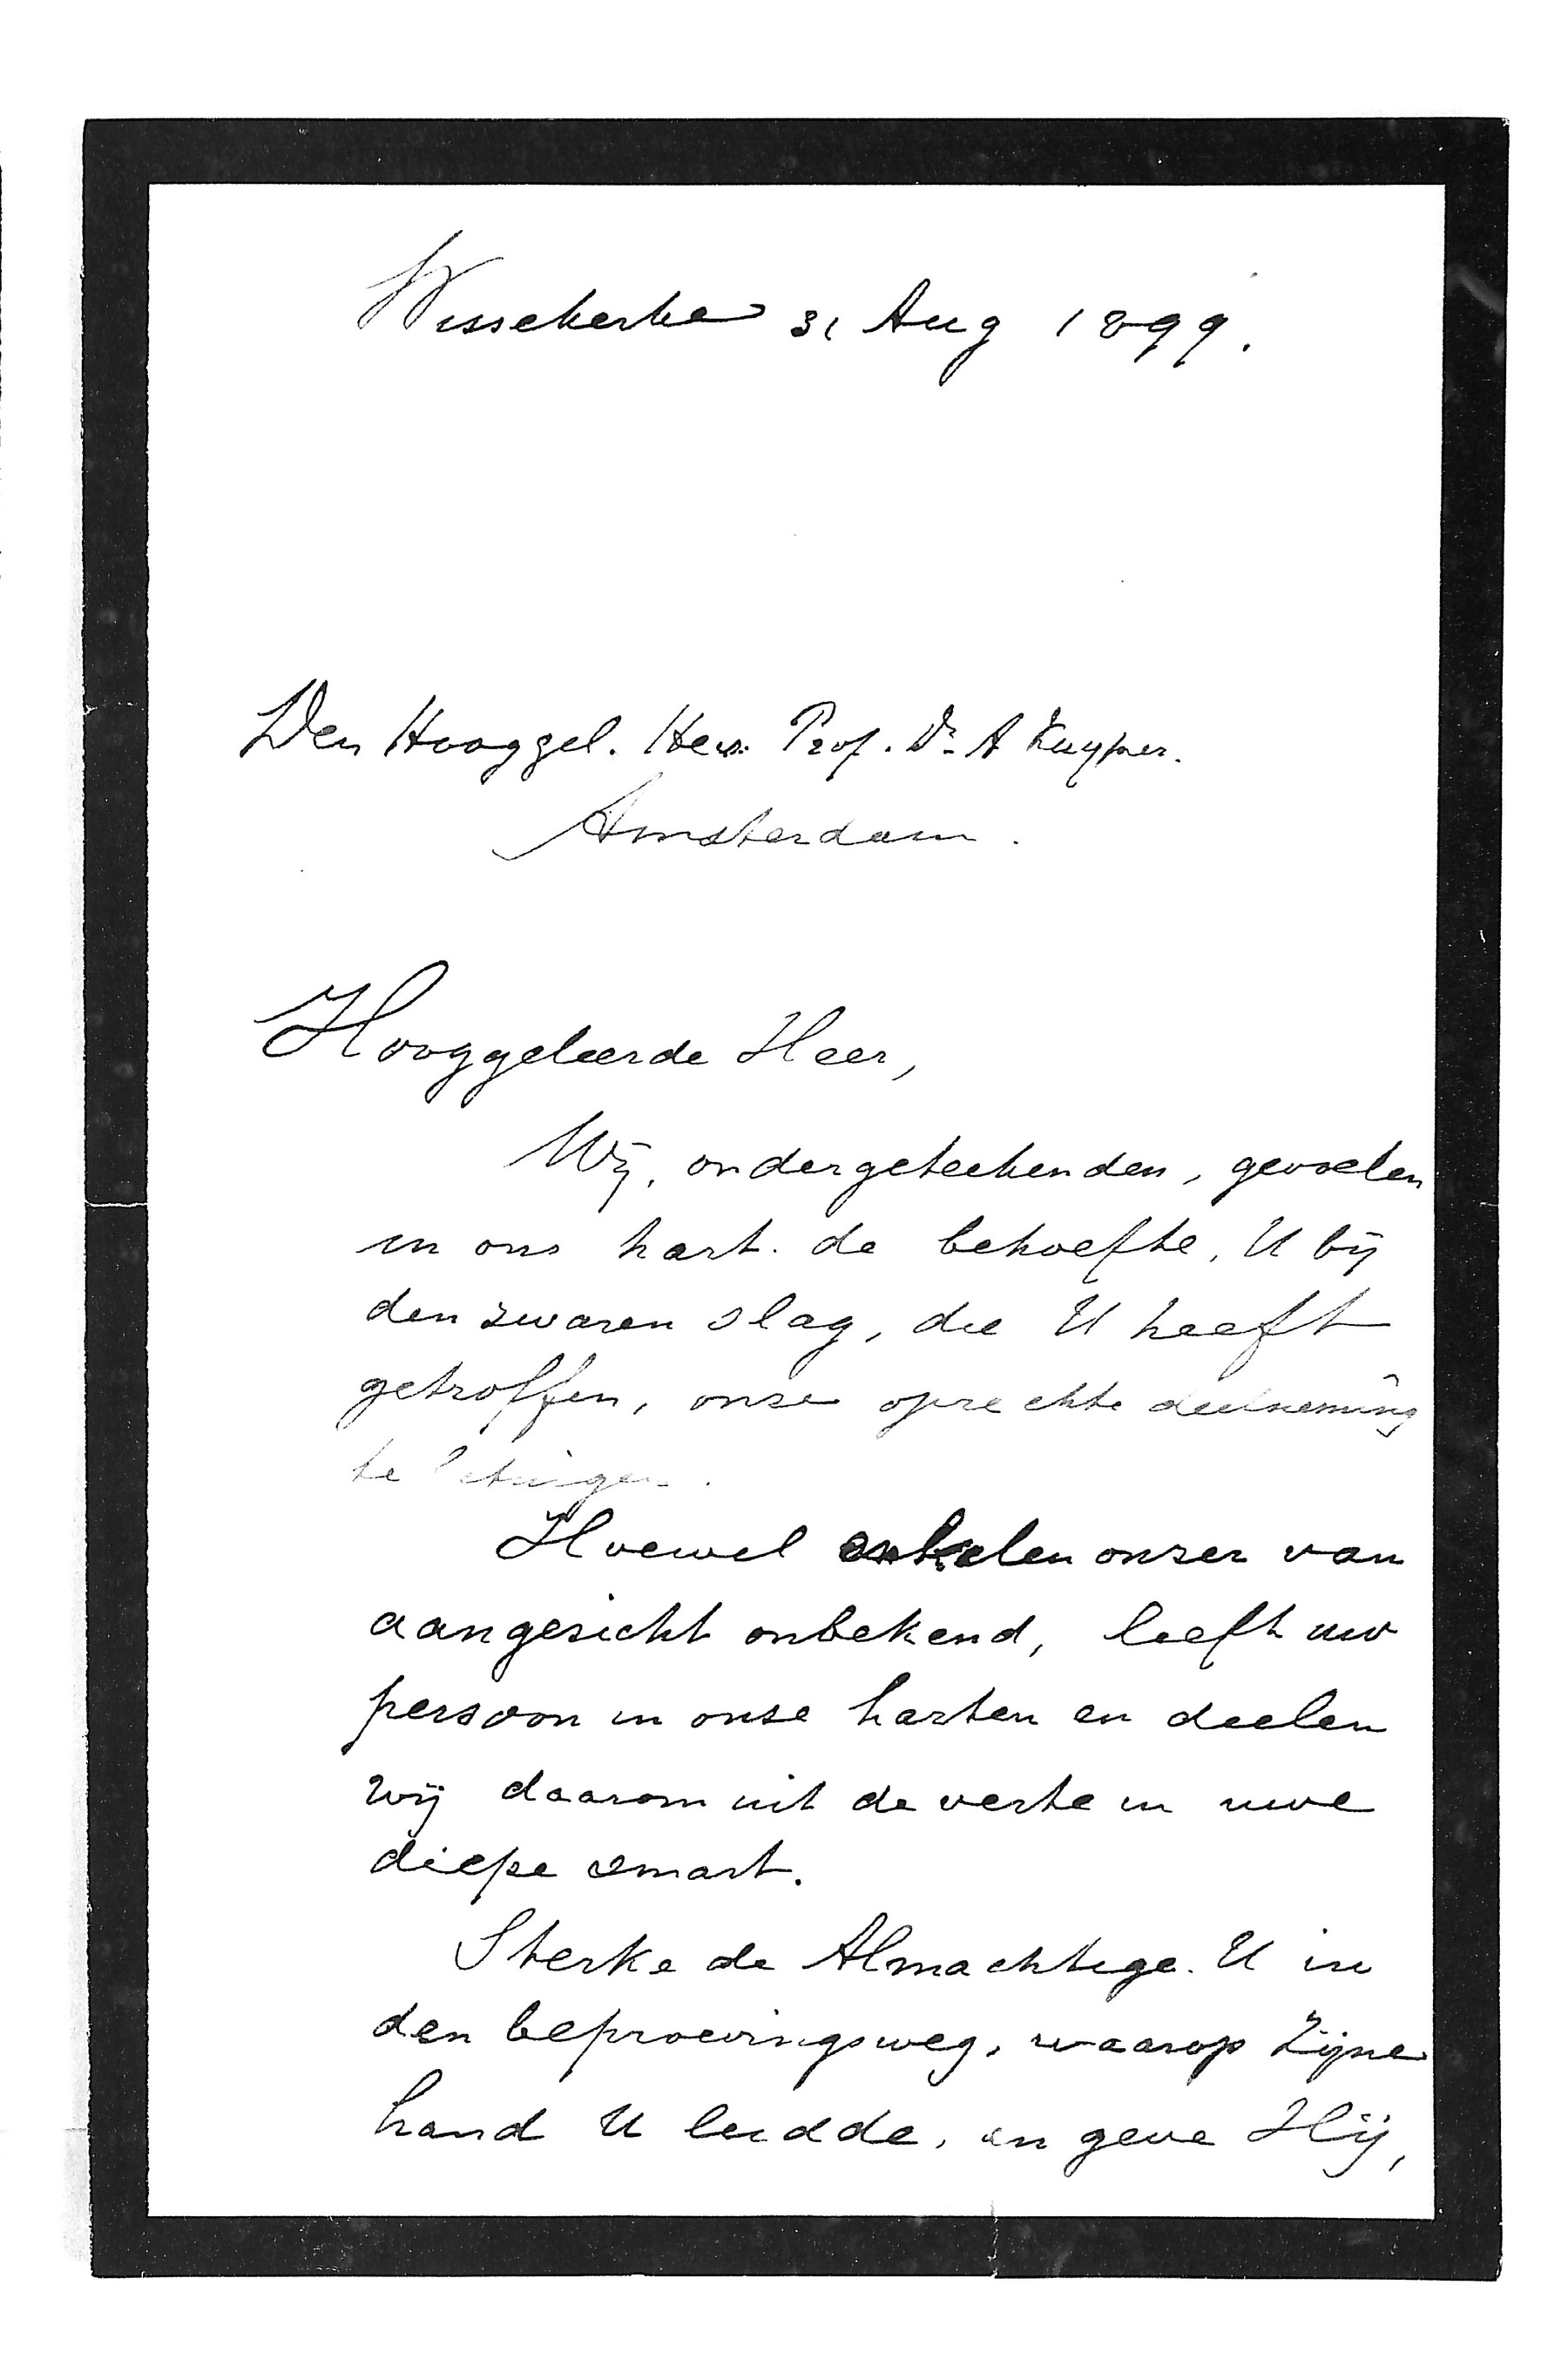 Wissekerke 31 Aug 1899.
Den Hooggel. Heer Prof. Dr. A Kuyper.
Amsterdam.
Hooggeleerde Heer,
Wij, ondergeteekenden, gevoelen
in ons hart de behoefte, U bij
den zwaren slag, die U heeft
getroffen, onze oprechte deelneming
te betuigen.
Hoewel enkelen onzer van
aangezicht onbekend, leeft uw
persoon in onze harten en deelen
wij daarom uit de verte in uwe
diepe smart.
Sterke de Almachtige U in
den beproevingsweg, waarop Zijne
hand U leidde, en geve Hij,